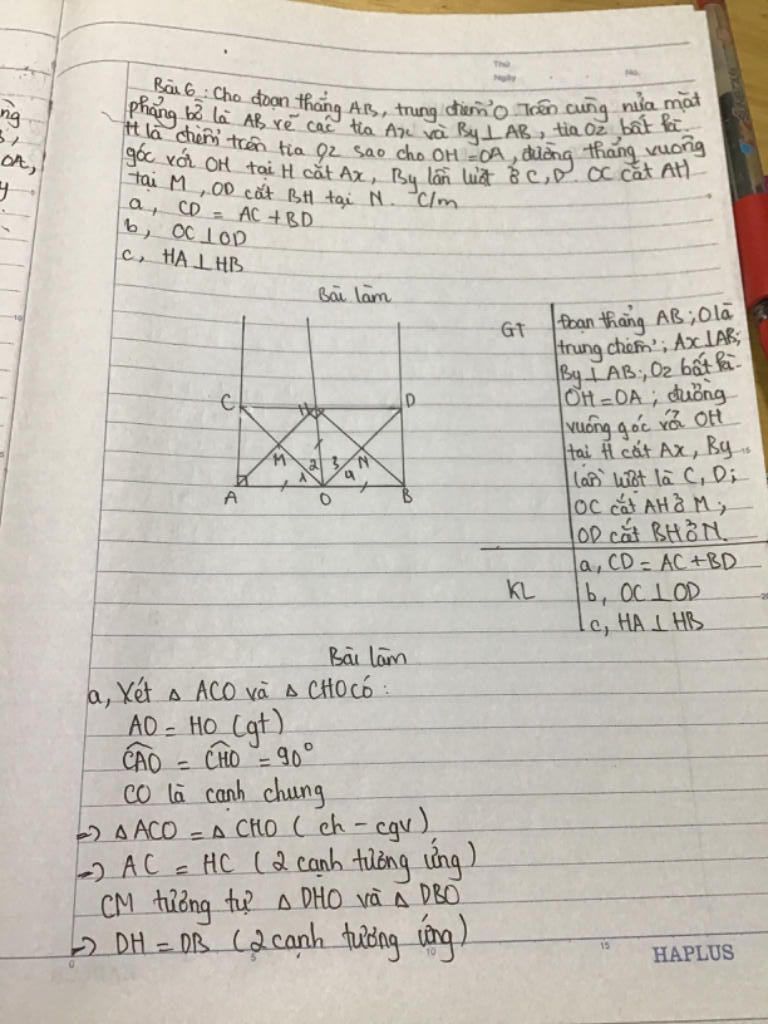 Thứ
Ngày
No.
Bài 6: Cho đoạn thẳng AB, trung điểm O Trên cùng nửa mặt
phẳng bờ là AB vẽ các tia Ax và By ⊥ AB, tia Oz bất kì.
H là điểm trên tia Oz sao cho OH = OA, đường thẳng vuông
góc với OH tại H cắt Ax, By lần lượt ở C, D. OC cắt AH
tại M, OD cắt BH tại N. C/m
a, CD = AC + BD
b, OC ⊥ OD
c, HA ⊥ HB
Bài làm
GT
Đoạn thẳng AB; O là
trung điểm; Ax ⊥ AB;
By ⊥ AB; Oz bất kì.
OH = OA; đường
vuông góc với OH
tại H cắt Ax, By
lần lượt là C, D;
OC cắt AH ở M;
OD cắt BH ở N.
KL
a, CD = AC + BD
b, OC ⊥ OD
c, HA ⊥ HB
C H D
M 2 3 N
1 4
A O B
Bài làm
a, Xét △ ACO và △ CHO có:
AO = HO (gt)
CAO = CHO = 90°
CO là cạnh chung
=> △ ACO = △ CHO (ch - cgv)
=> AC = HC (2 cạnh tương ứng)
CM tương tự △ DHO và △ DBO
=> DH = DB (2 cạnh tương ứng)
0 5 10 15
HAPLUS